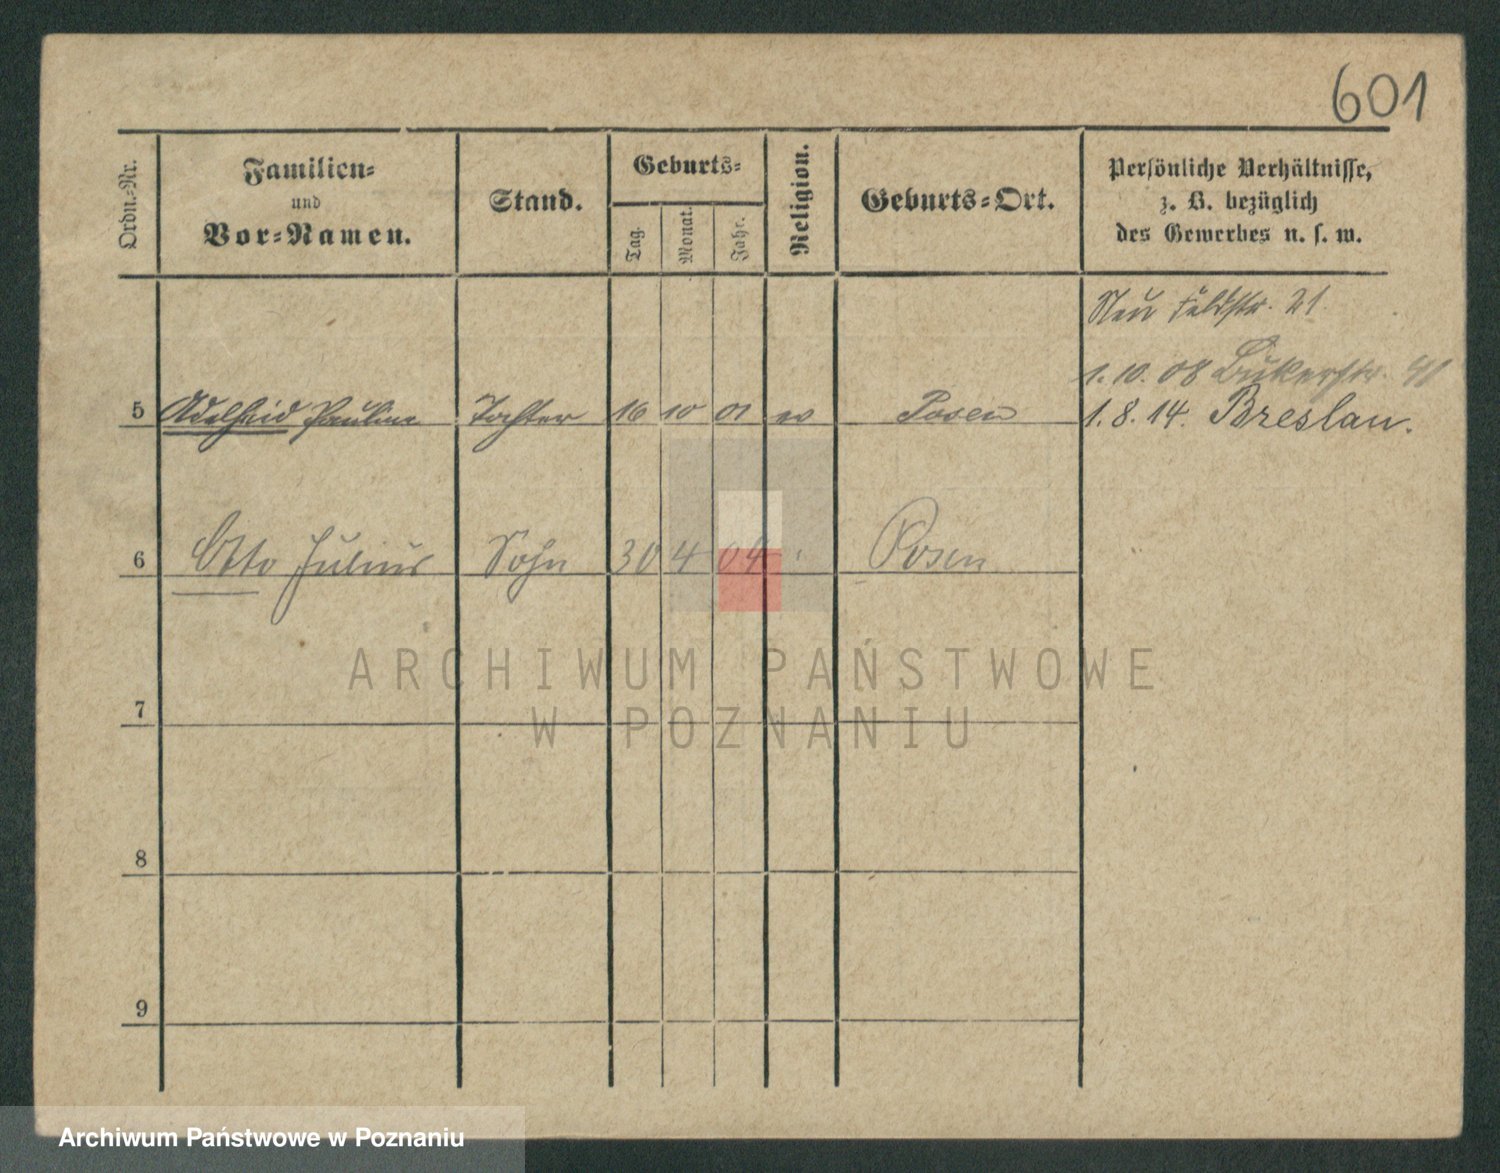 601
Ordn.-Nr.
Familien-
und
Vor-Namen.
Stand.
Geburts-
Tag.
Monat.
Jahr.
Religion.
Geburts-Ort.
Persönliche Verhältnisse,
z. B. bezüglich
des Gewerbes u. s. w.
Neu Feldstr. 21.
1.10.08 Bukerstr. 41
5 Adelheid Pauline Tochter 16 10 01 ev Posen 1.8.14. Breslau.
6 Otto Julius Sohn 30 4 04 Posen
7
8
9
ARCHIWUM PAŃSTWOWE
W POZNANIU
Archiwum Państwowe w Poznaniu